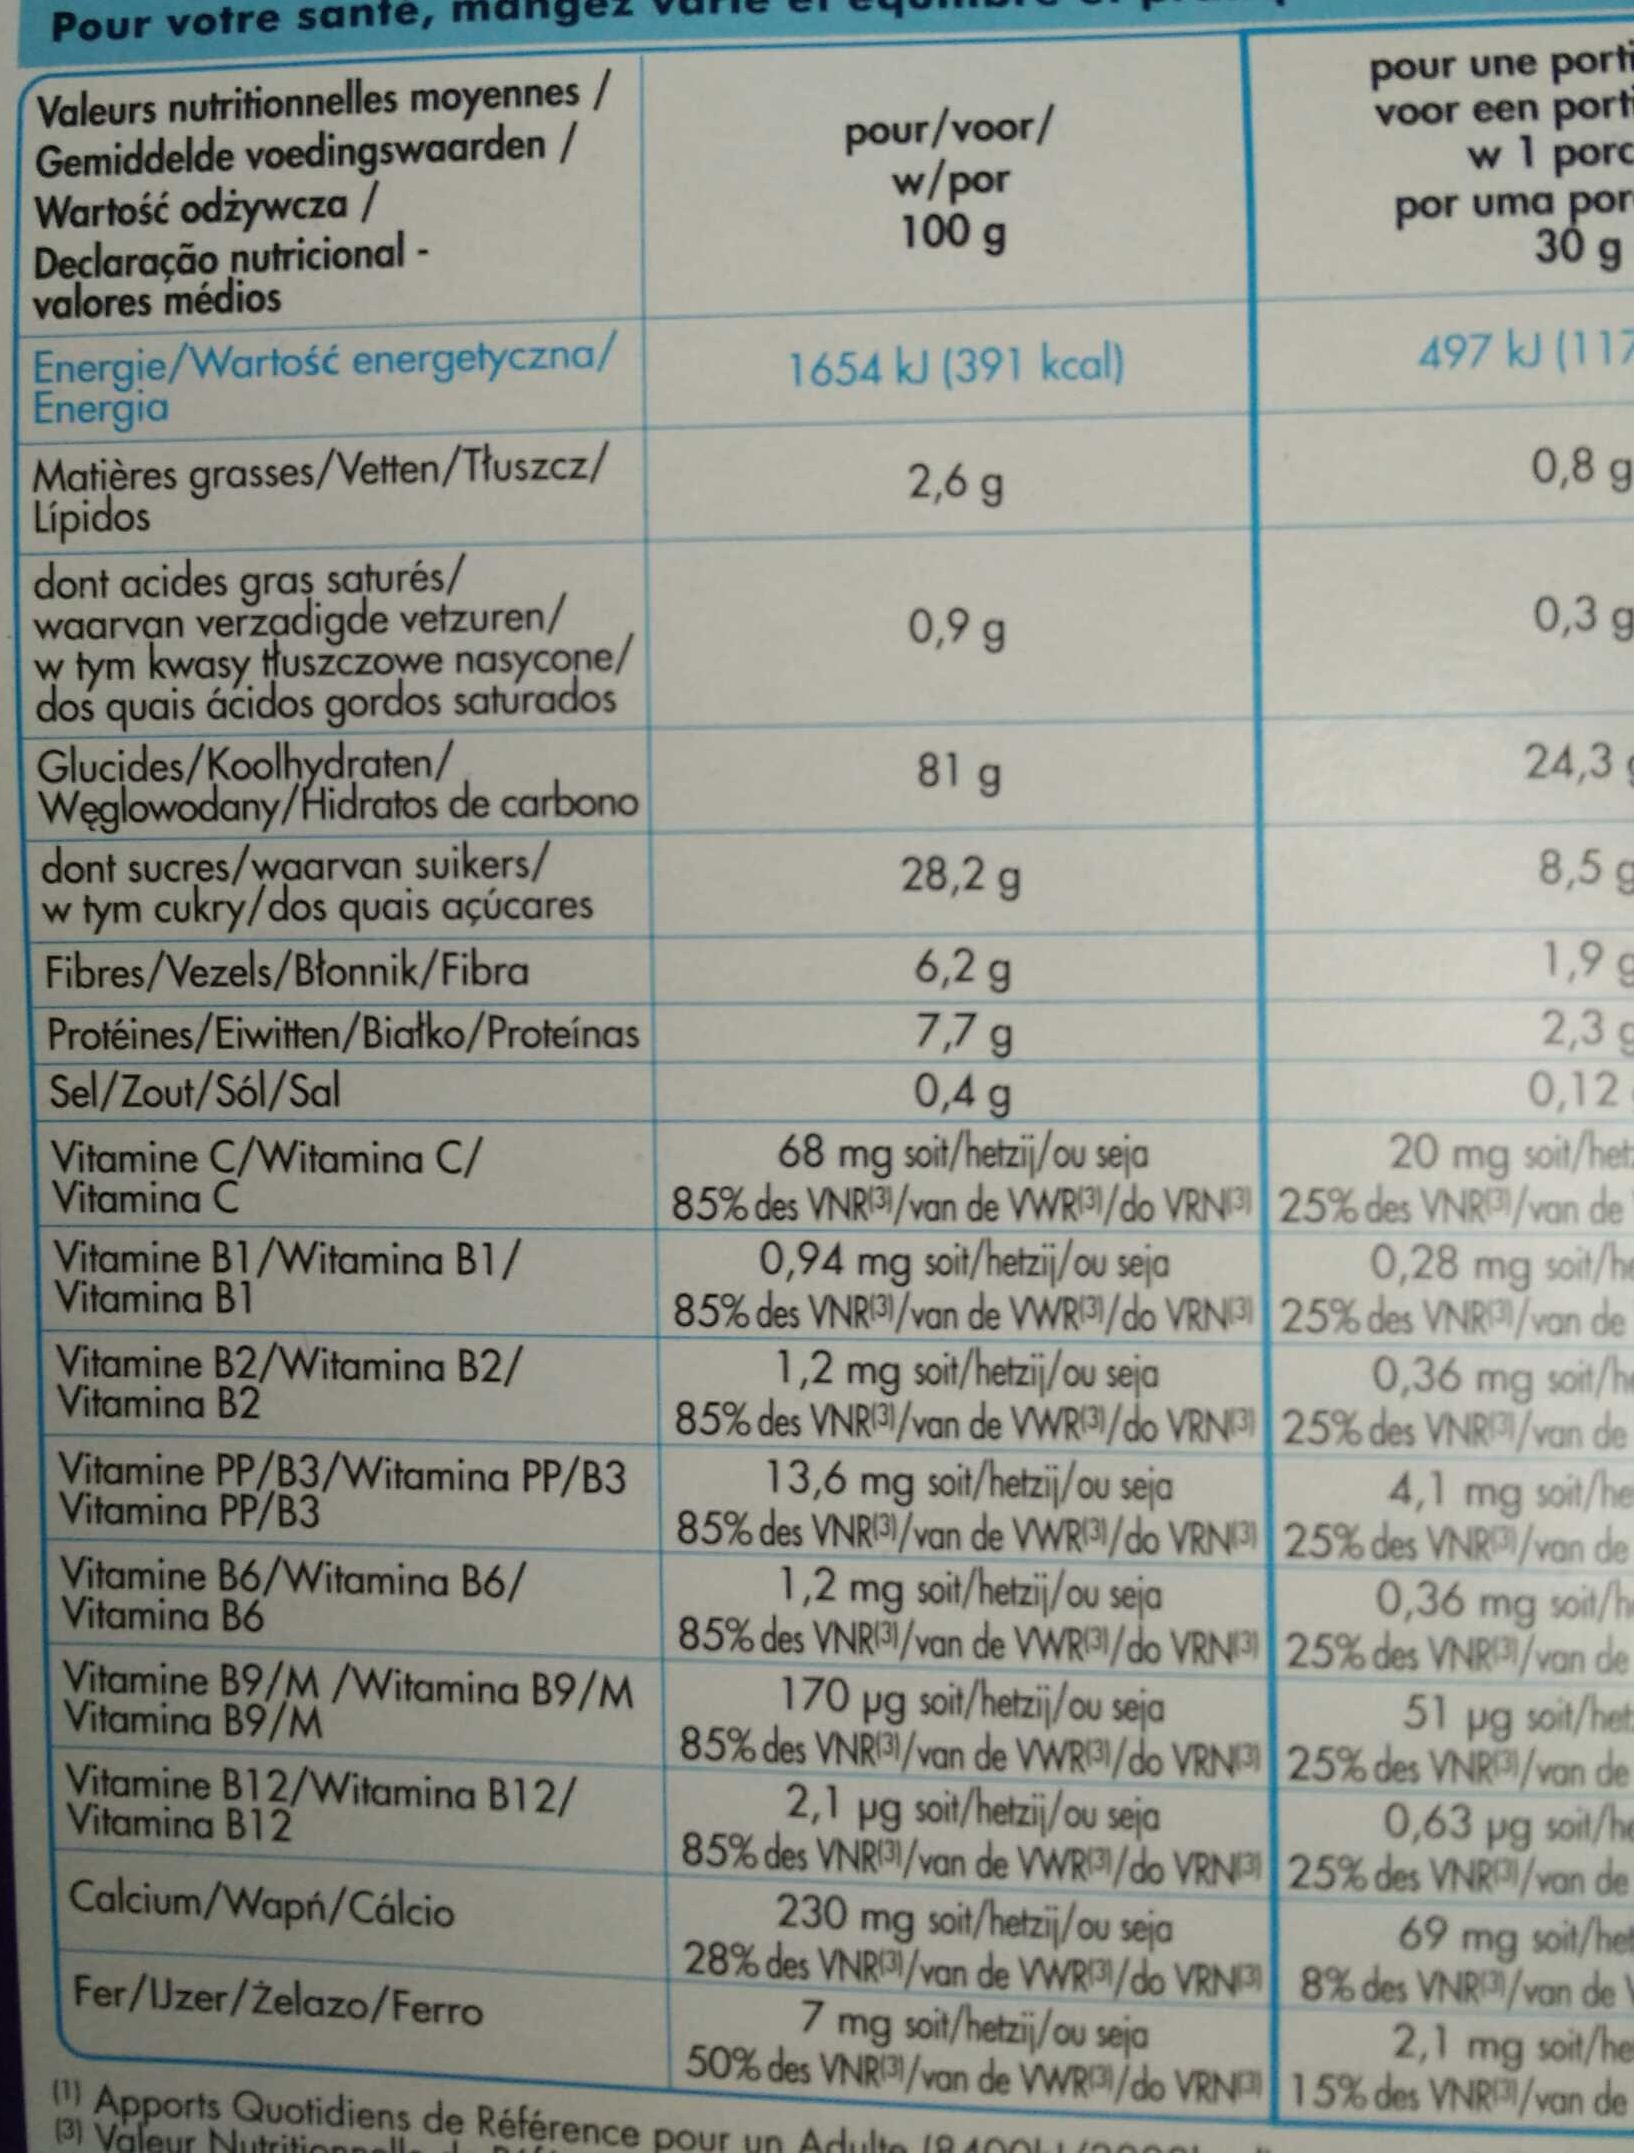 Pour votre santé, mangez varié et équilibré et
Valeurs nutritionnelles moyennes /
Gemiddelde voedingswaarden /
Wartość odżywcza /
Declaração nutricional -
valores médios
pour/voor/
w/por
100 g
pour une porti
voor een porti
w 1 porc
por uma por
30 g
Energie/Wartość energetyczna/
Energia
1654 kJ (391 kcal)
497 kJ (117
Matières grasses/Vetten/Tłuszcz/
Lípidos
2,6 g
0,8 g
dont acides gras saturés/
waarvan verzadigde vetzuren/
w tym kwasy tłuszczowe nasycone/
dos quais ácidos gordos saturados
0,9 g
0,3 g
Glucides/Koolhydraten/
Węglowodany/Hidratos de carbono
81 g
24,3 g
dont sucres/waarvan suikers/
w tym cukry/dos quais açúcares
28,2 g
8,5 g
Fibres/Vezels/Błonnik/Fibra
6,2 g
1,9 g
Protéines/Eiwitten/Białko/Proteínas
7,7 g
2,3 g
Sel/Zout/Sól/Sal
0,4 g
0,12
Vitamine C/Witamina C/
Vitamina C
68 mg soit/hetzij/ou seja
85% des VNR(3)/van de VWR(3)/do VRN(3)
20 mg soit/het
25% des VNR(3)/van de
Vitamine B1/Witamina B1/
Vitamina B1
0,94 mg soit/hetzij/ou seja
85% des VNR(3)/van de VWR(3)/do VRN(3)
0,28 mg soit/he
25% des VNR(3)/van de
Vitamine B2/Witamina B2/
Vitamina B2
1,2 mg soit/hetzij/ou seja
85% des VNR(3)/van de VWR(3)/do VRN(3)
0,36 mg soit/he
25% des VNR(3)/van de
Vitamine PP/B3/Witamina PP/B3
Vitamina PP/B3
13,6 mg soit/hetzij/ou seja
85% des VNR(3)/van de VWR(3)/do VRN(3)
4,1 mg soit/he
25% des VNR(3)/van de
Vitamine B6/Witamina B6/
Vitamina B6
1,2 mg soit/hetzij/ou seja
85% des VNR(3)/van de VWR(3)/do VRN(3)
0,36 mg soit/h
25% des VNR(3)/van de
Vitamine B9/M /Witamina B9/M
Vitamina B9/M
170 µg soit/hetzij/ou seja
85% des VNR(3)/van de VWR(3)/do VRN(3)
51 µg soit/het
25% des VNR(3)/van de
Vitamine B12/Witamina B12/
Vitamina B12
2,1 µg soit/hetzij/ou seja
85% des VNR(3)/van de VWR(3)/do VRN(3)
0,63 µg soit/he
25% des VNR(3)/van de
Calcium/Wapń/Cálcio
230 mg soit/hetzij/ou seja
28% des VNR(3)/van de VWR(3)/do VRN(3)
69 mg soit/het
8% des VNR(3)/van de V
Fer/IJzer/Żelazo/Ferro
7 mg soit/hetzij/ou seja
50% des VNR(3)/van de VWR(3)/do VRN(3)
2,1 mg soit/he
15% des VNR(3)/van de
(1) Apports Quotidiens de Référence pour un Adulte
(3) Valeur Nutritionnelle de